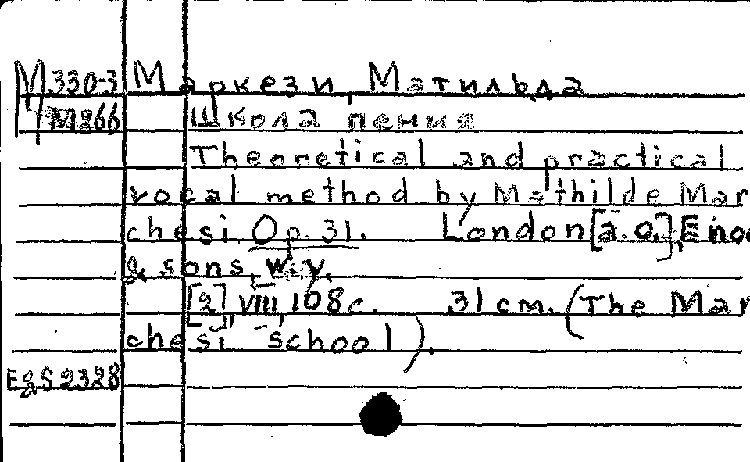 М 330-3 Маркези, Матильда
М266 Школа пения
Theoretical and practical
vocal method by Mathilde Mar
chesi Op. 31. London [a.o.], Enoc
& sons, w.y.
[2], VIII, 108 c. 31 cm. (The Mar
chesi school).
EgS2328